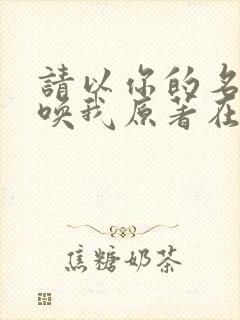 請以你的名
喚我原著在
焦糖奶茶